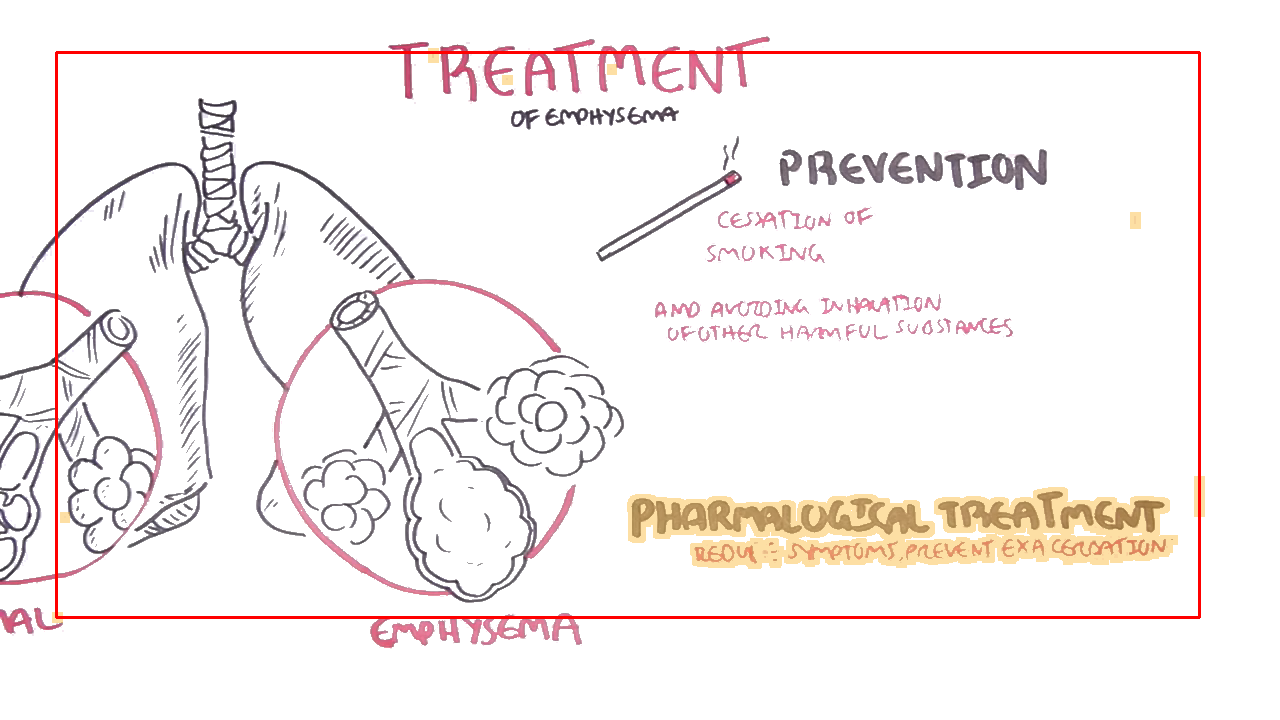 TREATMENT
OF EMPHYSEMA
PREVENTION
CESSATION OF
SMOKING
AND AVOIDING INHALATION
OF OTHER HARMFUL SUBSTANCES
PHARMALOGICAL TREATMENT
SYMPTOMS, PREVENT EXACERBATION
MAL
EMPHYSEMA